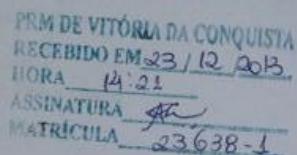 PRM DE VITÓRIA DA CONQUISTA
RECEBIDO EM 23/12/2013
HORA 14:21
ASSINATURA
MATRÍCULA 23638-1